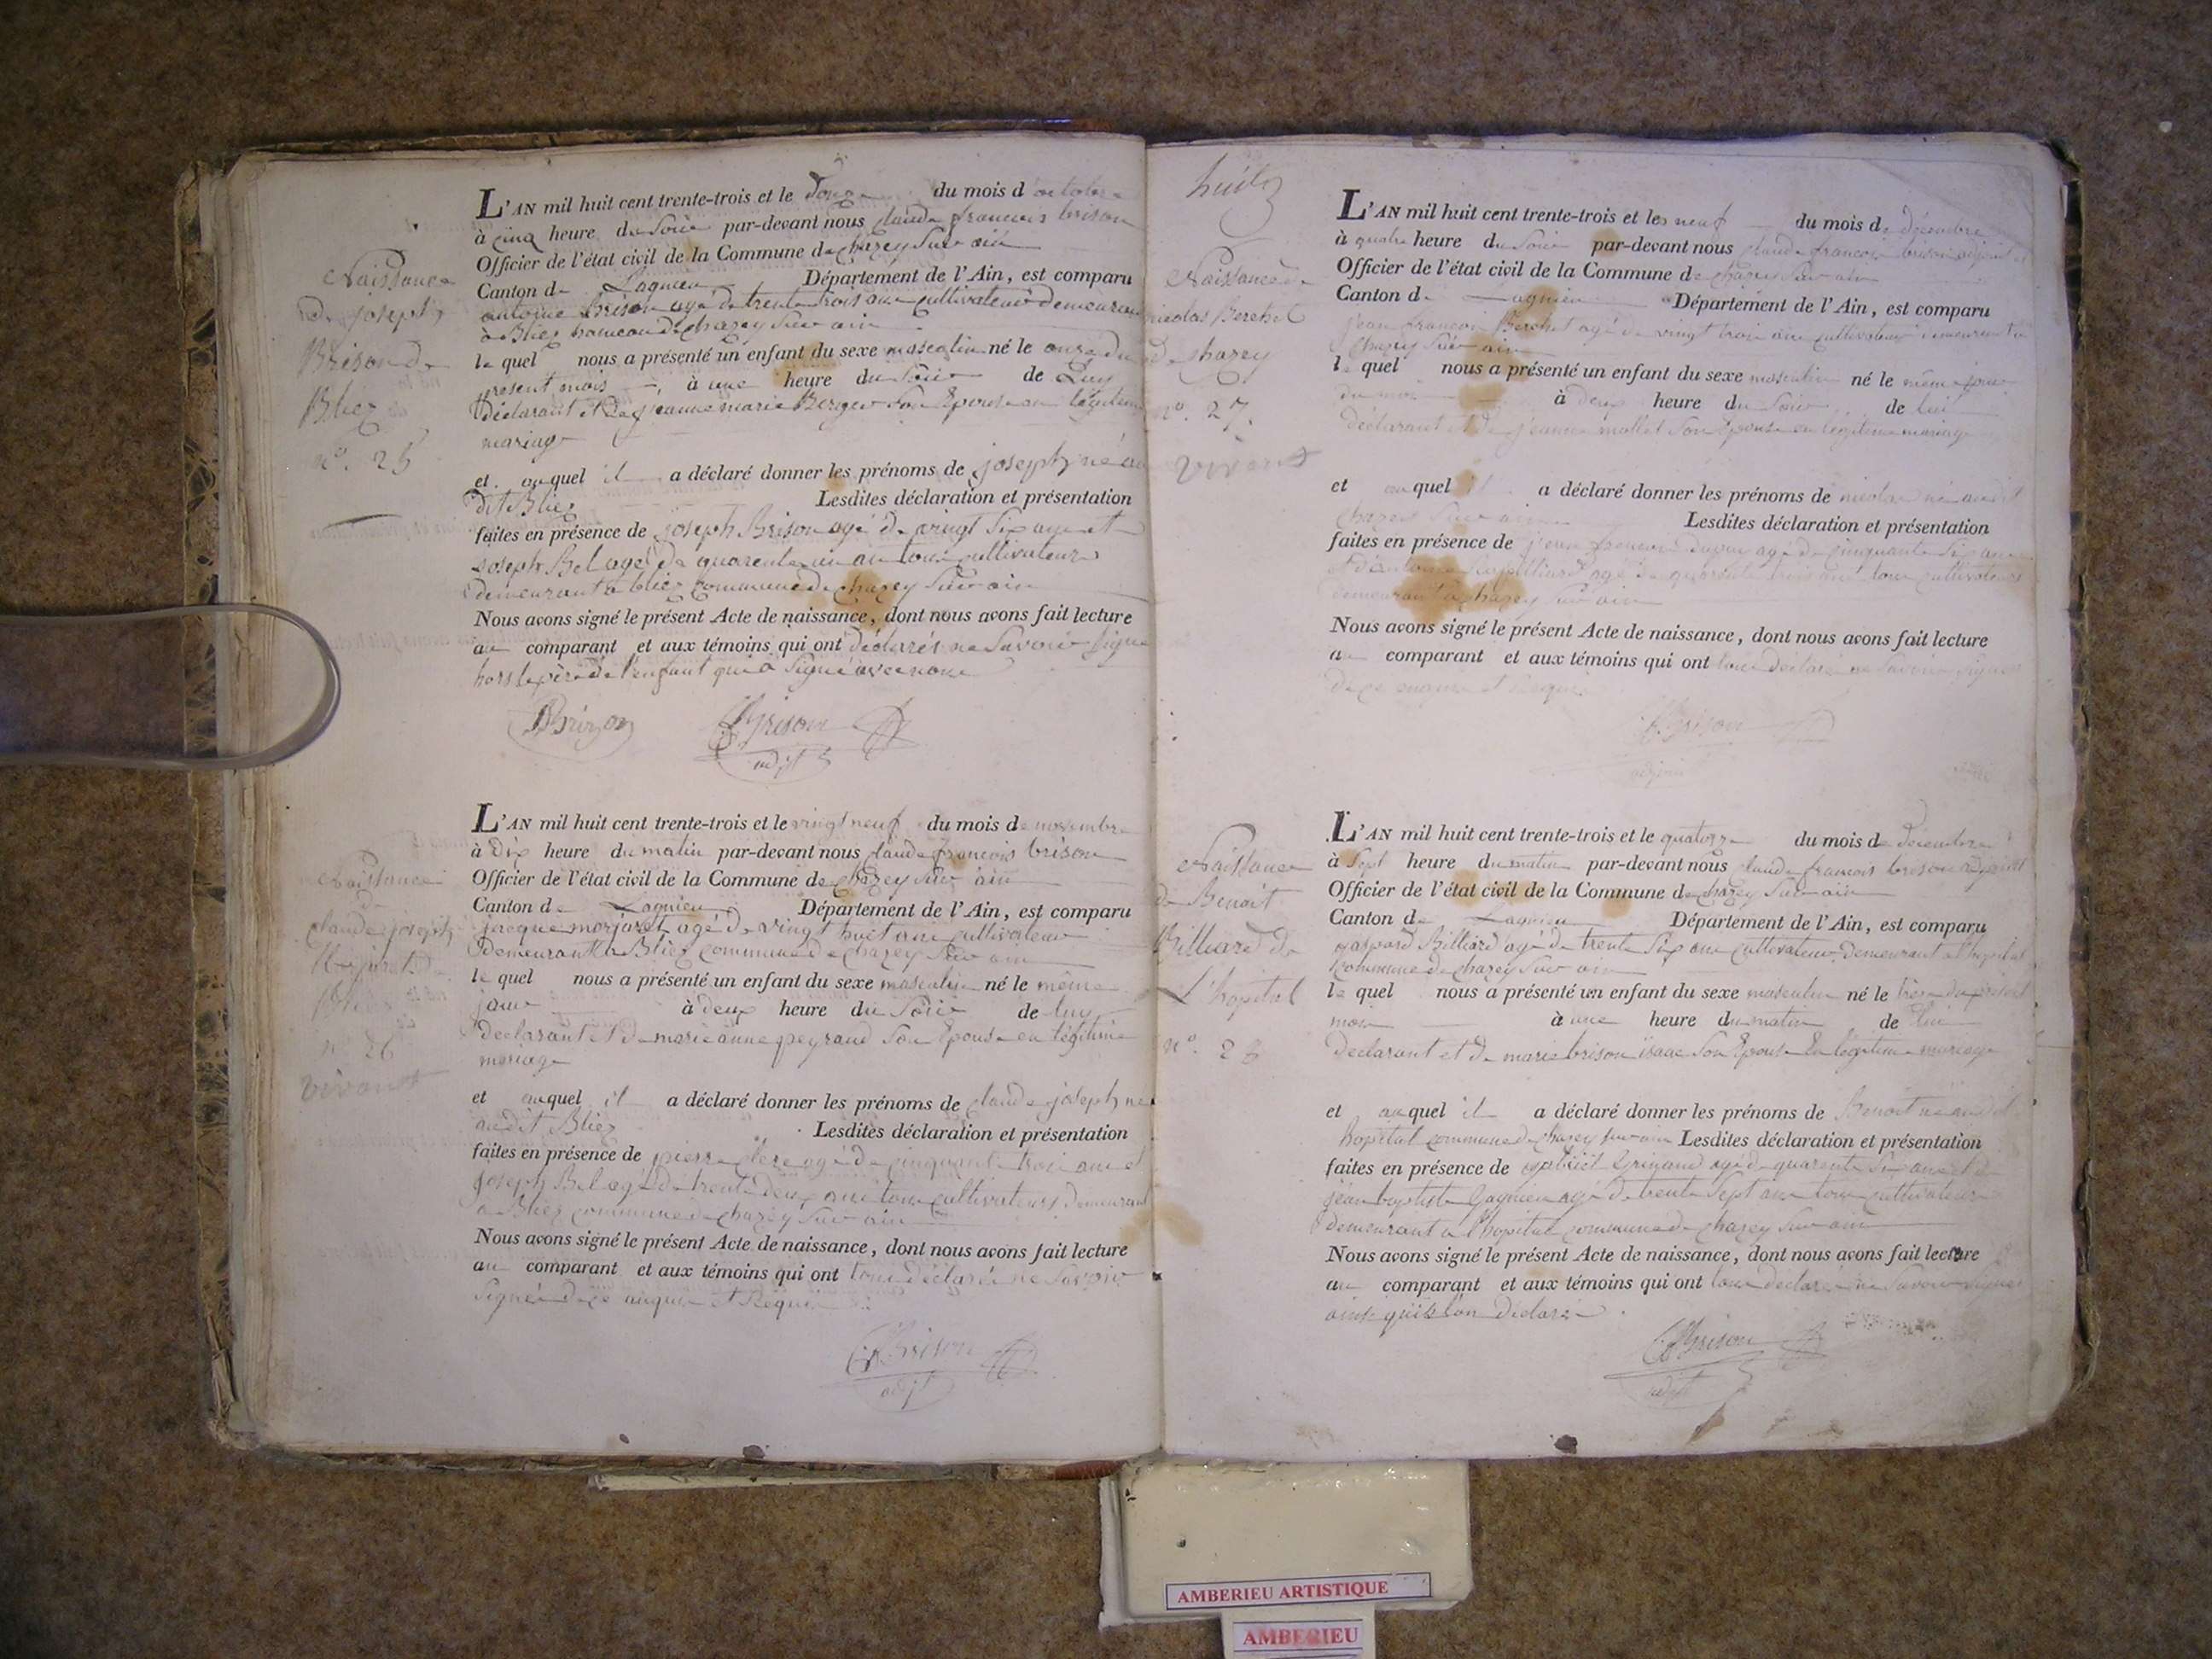 Naissance
de joseph
Brison de
Bliez
n°. 25
L'AN mil huit cent trente-trois et le douze du mois d'octobre
à cinq heure du soir par-devant nous claude françois brison
Officier de l'état civil de la Commune de chazey sur ain
Canton de Lagnieu Département de l'Ain, est comparu
antoine Brison agé de trente trois ans cultivateur demeurant
à Bliez hameau de chazey sur ain
le quel nous a présenté un enfant du sexe masculin né le onze du
present mois, à une heure du soir de Luy
déclarant et de jeanne marie Berger son Epouse en légitime
mariage
et auquel il a déclaré donner les prénoms de joseph né au
dit Bliez Lesdites déclaration et présentation
faites en présence de joseph Brison agé de vingt six ans et
joseph Bel agé de quarente un an tous cultivateurs
demeurant à bliez commune de chazey sur ain
Nous avons signé le présent Acte de naissance, dont nous avons fait lecture
au comparant et aux témoins qui ont déclarés ne savoir signe
hors le père de l'enfant qui a signé avec nous
Brizon Brison
adjt
Naissance
de
claude joseph
n° 26
vivant
L'AN mil huit cent trente-trois et le vingt neuf du mois de novembre
à dix heure du matin par-devant nous claude françois brison
Officier de l'état civil de la Commune de chazey sur ain
Canton de Lagnieu Département de l'Ain, est comparu
jacque morjaret agé de vingt huit ans cultivateur
demeurant à Bliez commune de chazey sur ain
le quel nous a présenté un enfant du sexe masculin né le même
jour à deux heure du soir de luy
declarant et de marie anne peyraud son Epouse en légitime
mariage
et auquel il a déclaré donner les prénoms de claude joseph né
audit Bliez Lesdites déclaration et présentation
faites en présence de pierre clere agé de cinquante trois ans et
joseph Bel agé de trente deux ans tous cultivateurs demeurant
à Bliez commune de chazey sur ain
Nous avons signé le présent Acte de naissance, dont nous avons fait lecture
au comparant et aux témoins qui ont tous déclarés ne savoir
signer de ce enquis et Requis
Brison
adjt
huit
Naissance de
nicolas Berchet
de chazey
n°. 27.
vivant
L'AN mil huit cent trente-trois et les neuf du mois de décembre
à quatre heure du soir par-devant nous claude françois brison adjoint
Officier de l'état civil de la Commune de chazey sur ain
Canton de Lagnieu Département de l'Ain, est comparu
jean françois Berchet agé de vingt trois ans cultivateur demeurant à
chazey sur ain
le quel nous a présenté un enfant du sexe masculin né le même jour
du mois à deux heure du soir de lui
déclarant et de jeanne mollet son Epouse en légitime mariage
et auquel il a déclaré donner les prénoms de nicolas né audit
chazey sur ain Lesdites déclaration et présentation
faites en présence de jean françois agé de cinquante six ans
et d'antoine agé de quarente trois ans tous cultivateurs
demeurant à chazey sur ain
Nous avons signé le présent Acte de naissance, dont nous avons fait lecture
au comparant et aux témoins qui ont tous déclaré ne savoir signer
de ce enquis et Requis
Brison
adjoint
Naissance
de Benoit
Billiard de
L'hopital
n°. 28
L'AN mil huit cent trente-trois et le quatorze du mois de décembre
à sept heure du matin par-devant nous claude françois brison adjoint
Officier de l'état civil de la Commune de chazey sur ain
Canton de Lagnieu Département de l'Ain, est comparu
gaspard Billiard agé de trente six ans cultivateur demeurant a l'hopital
commune de chazey sur ain
le quel nous a présenté un enfant du sexe masculin né le treize du présent
mois à une heure du matin de lui
declarant et de marie brison isaac son Epouse En légitime mariage
et auquel il a déclaré donner les prénoms de Benoit né audit
hopital commune de chazey sur ain Lesdites déclaration et présentation
faites en présence de gabriel Grinand agé de quarente six ans et de
jean baptiste Gagnieu agé de trente sept ans tous cultivateurs
demeurant a l'hopital commune de chazey sur ain
Nous avons signé le présent Acte de naissance, dont nous avons fait lecture
au comparant et aux témoins qui ont tous declaré ne savoir signer
ainsi qu'ils l'on déclaré
Brison
adjt
AMBERIEU ARTISTIQUE
AMBERIEU